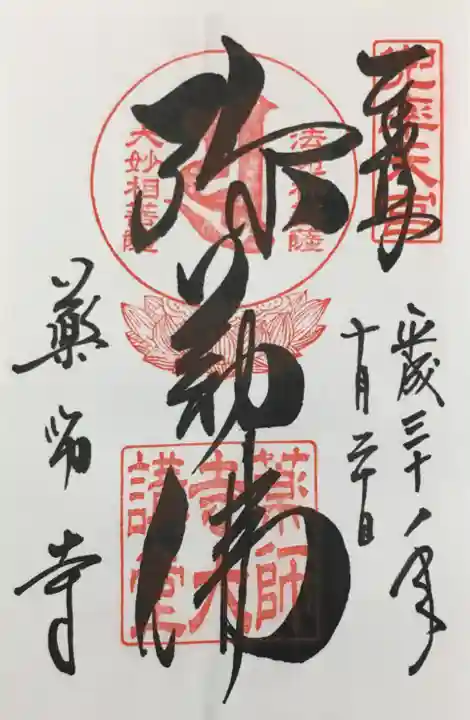 兜率天宮
平成三十年
十月二十日
弥勒佛
法苑林菩薩
大妙相菩薩
薬師
寺大
講堂
藥師寺